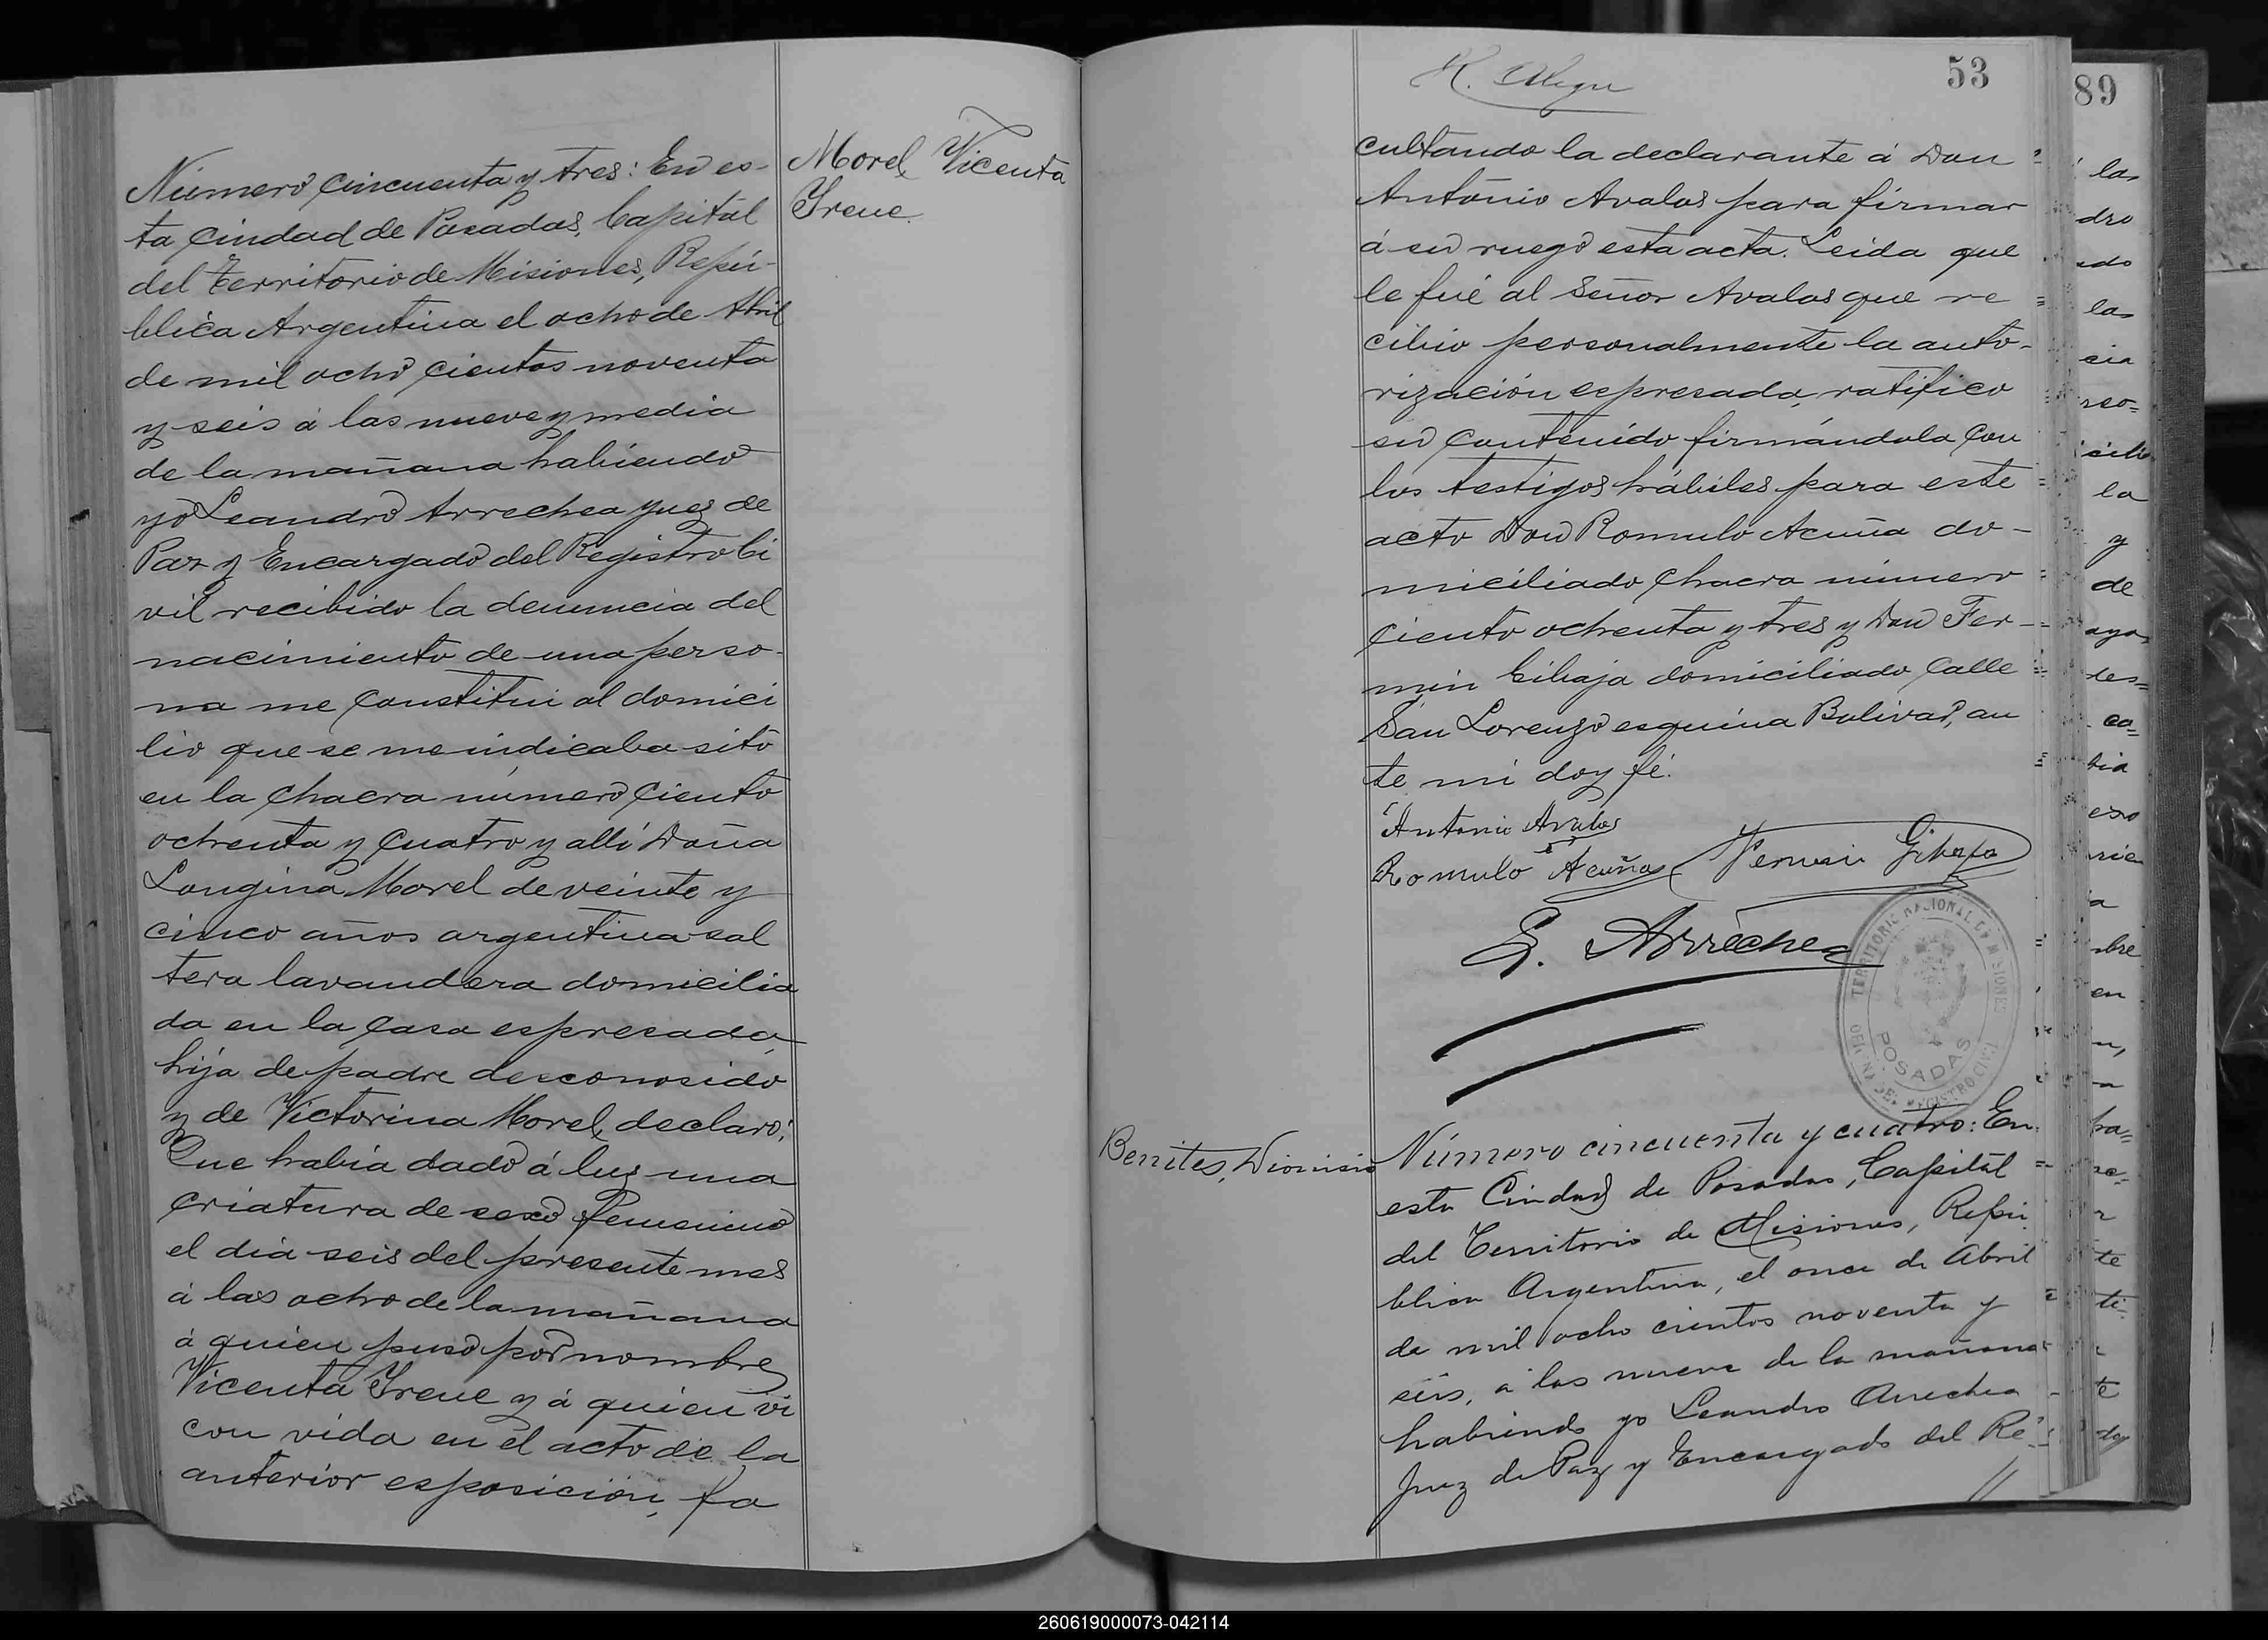 Morel, Vicenta
Irene.
Número cincuenta y tres: En es-
ta Ciudad de Posadas, Capital
del Territorio de Misiones, Repú-
blica Argentina el ocho de Abril
de mil ocho cientos noventa
y seis á las nueve y media
de la mañana habiendo
yo Leandro Arrechea Juez de
Paz y Encargado del Registro Ci
vil recibido la denuncia del
nacimiento de una perso-
na me constitui al domici
lio que se me indicaba sito
en la chacra número ciento
ochenta y cuatro y allí Doña
Longina Morel de veinte y
cinco años argentina sol
tera lavandera domicilia
da en la casa espresada,
hija de padre desconosido
y de Victorina Morel, declaró:
Que habia dado á luz una
criatura de sexo femenino
el dia seis del presente mes
á las ocho de la mañana
á quien puso por nombre
Vicenta Irene y á quien vi
con vida en el acto de la
anterior esposición, fa
53
cultando la declarante á Don
Antonio Avalos para firmar
á su ruego esta acta. Leida que
le fué al Señor Avalos que re
cibio personalmente la auto-
rización espresada, ratifico
su contenido firmándola con
los testigos hábiles para este
acto Don Romulo Acuña do-
miciliado chacra número
ciento ochenta y tres y Don Fer-
min Gibaja domiciliado calle
San Lorenzo esquina Bolivar, an
te mi doy fé.
Antonio Avalos
Romulo Acuña Fermin Gibaja
L. Arrechea
TERRITORIO NACIONAL DE MISIONES
OFICINA DEL REGISTRO CIVIL
POSADAS
Benites, Dionisio
Número cincuenta y cuatro: En
esta Ciudad de Posadas, Capital
del Territorio de Misiones, Repú
blica Argentina, el once de Abril
de mil ocho cientos noventa y
seis, á las nueve de la mañana
habiendo yo Leandro Arrechea
Juez de Paz y Encargado del Re
89
260619000073-042114